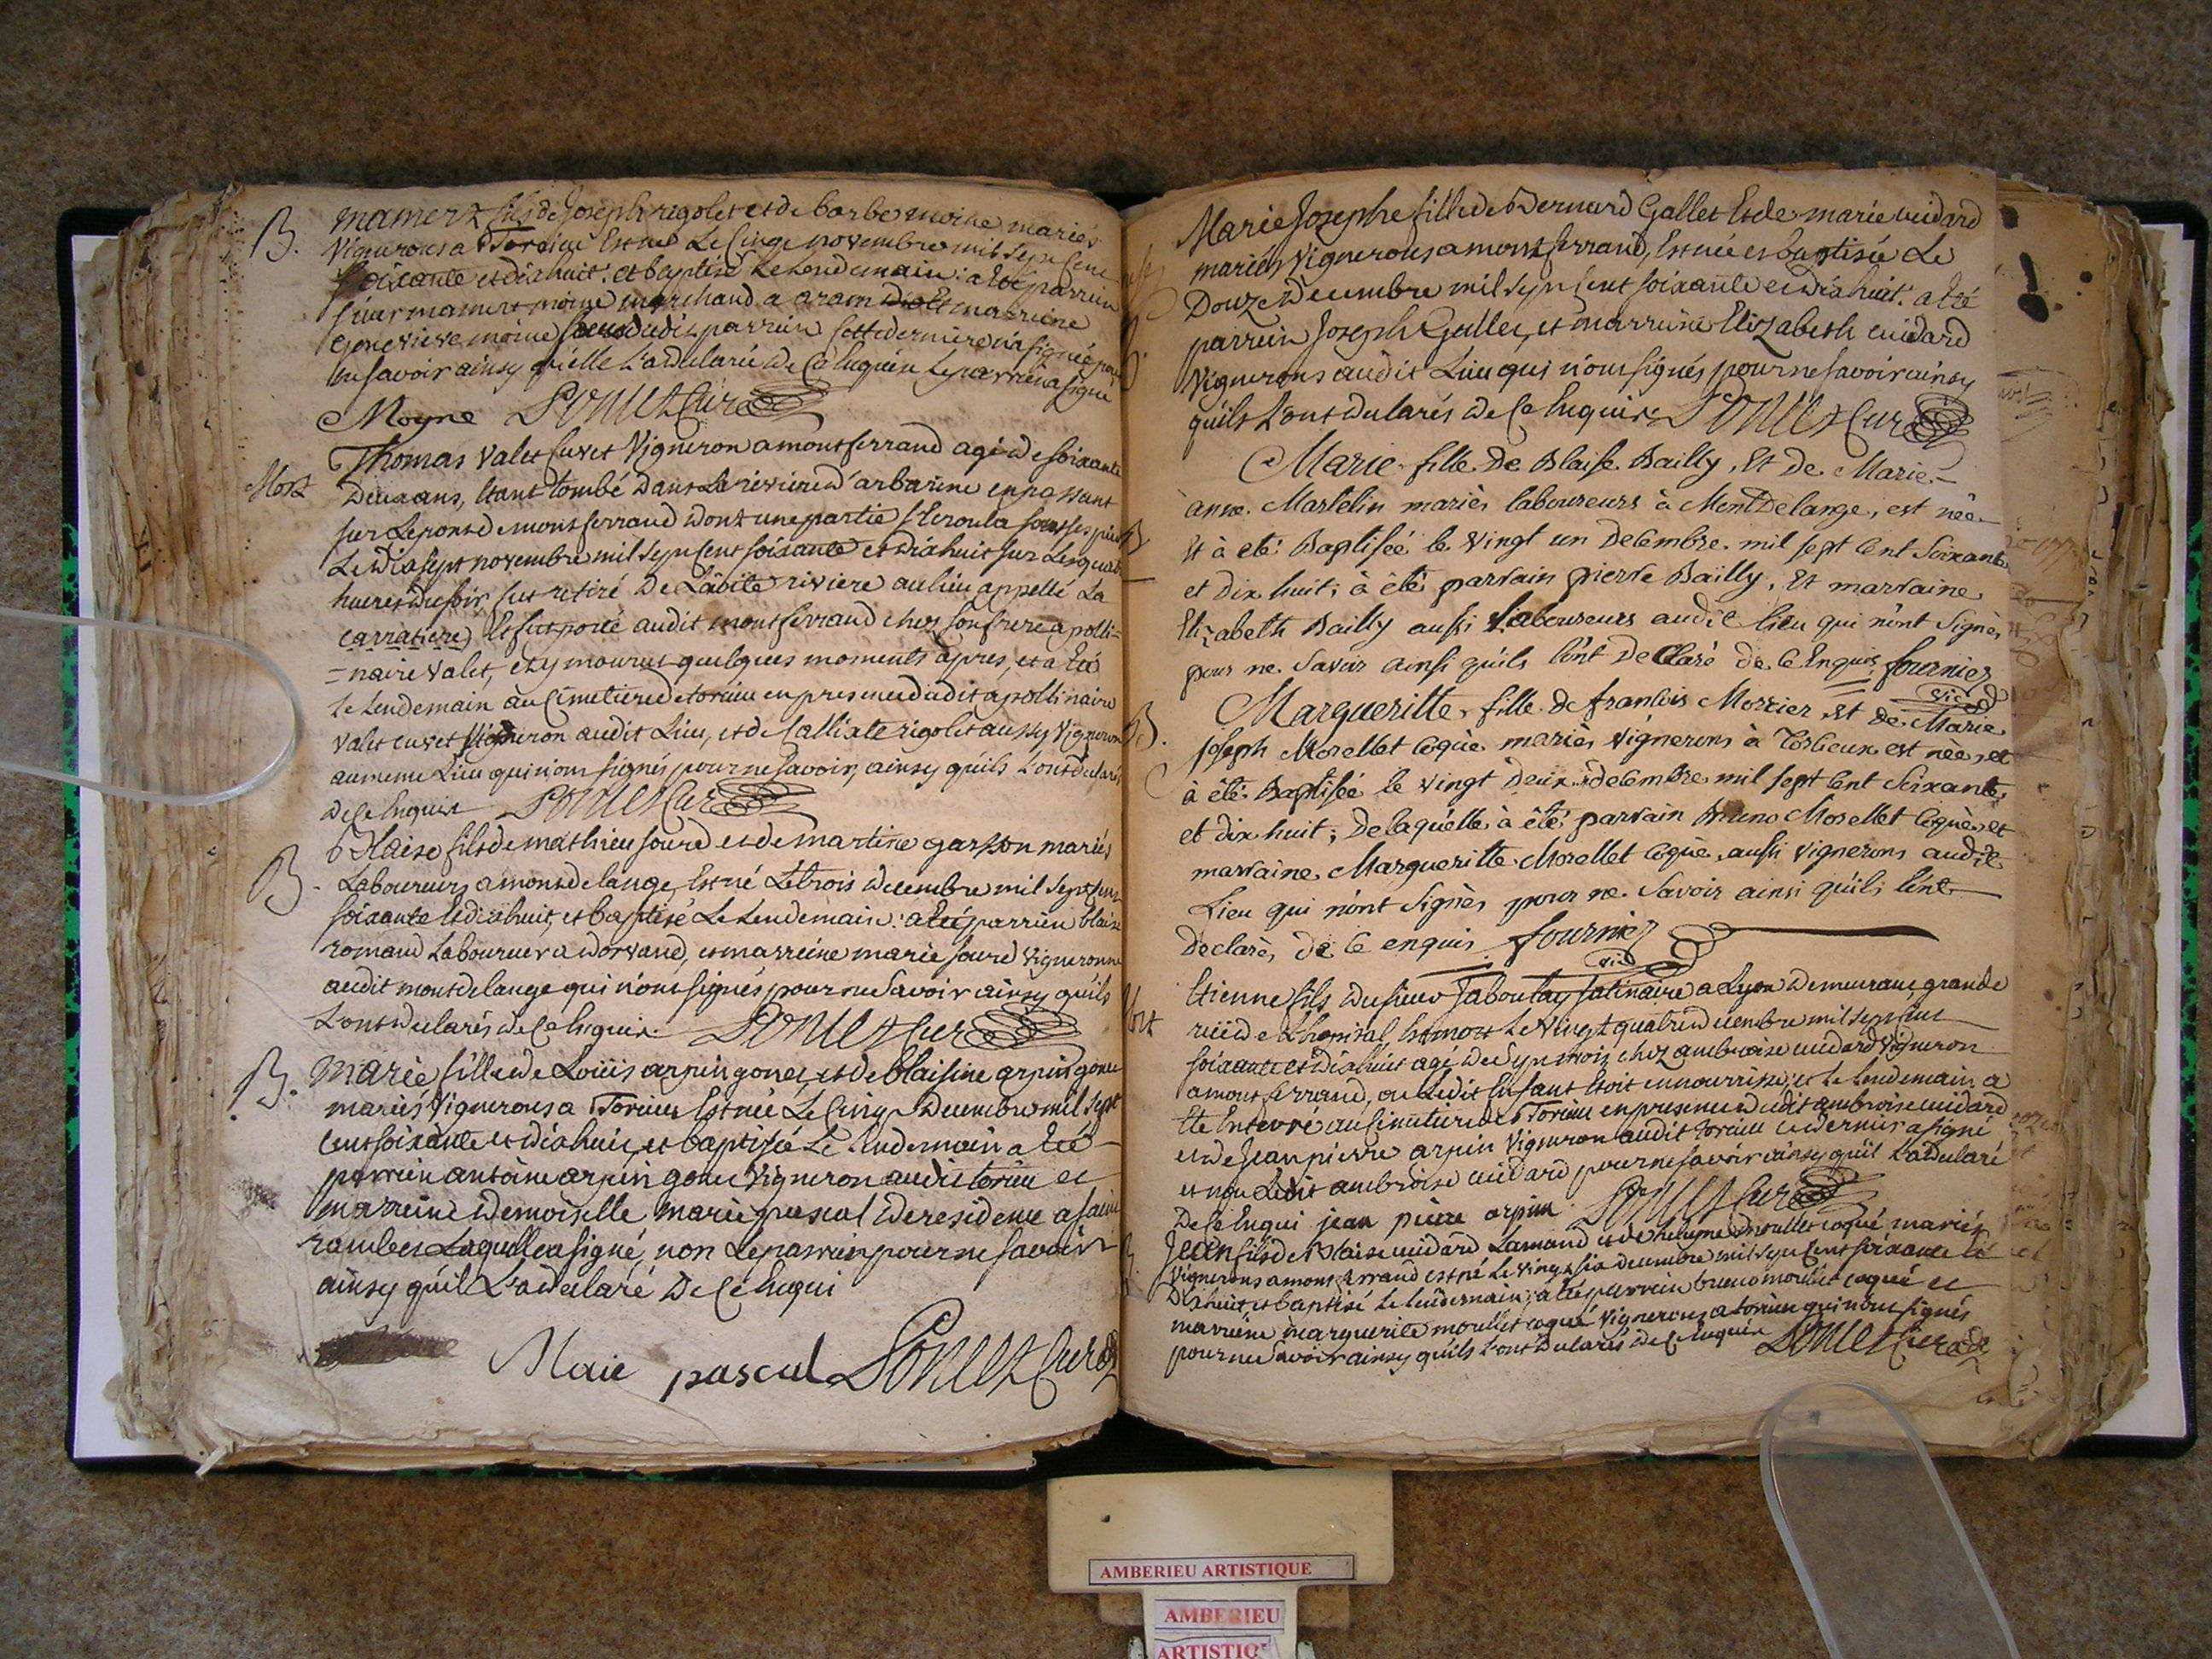 B. mamert fils de Joseph rigolet et de barbe moine mariés
Vignerons a Torcieu Est né Le Cinq novembre mil sept Cent
soixante et dix huit. et baptisé Le Lendemain: a été parrain
sieur mamert moine marchand a aram Et marreine
Genevieve moine dudit parrein Cette derniere n'a signé pour
ne savoir ainsy qu'elle L'a déclaré De Ce Enquise Le parrein a signé
Moyne Ponsetcuré
Thomas valet Cuvet Vigneron a montferrand agé de soixante
Mort deux ans, Etant tombé dans La riviere d'arbarine en passant
sur Le pont de montferrand dont une partie s'Ecroula sous ses pieds
Le dix sept novembre mil sept Cent soixante et dix huit sur Les quatre
heures du soir fut retiré De Ladite riviere au lieu appellé La
carratiere) Et fut porté audit montferrand chez son frere apolli=
=naire valet, et y mourut quelques moments apres, et a Eté
Le Lendemain au Cimetiere de torcieu en presence dudit apollinaire
valet cuvet Vigneron audit Lieu, et de Callixte rigolet aussy Vigneron
au meme Lieu qui n'ont signés pour ne savoir, ainsy quils L'ont declarés
de Ce Enquis
B. Blaise fils de mathieu sourd et de martine garson mariés
Laboureurs a montdelange, Est né Le trois decembre mil sept Cent
soixante Et dix huit, et baptisé Le Lendemain: a été parrein blaise
romand Laboureur a dorvand, et marreine marie sourd Vigneronne
audit montdelange qui n'ont signés pour ne savoir ainsy quils
L'ont declarés de Ce Enquis
B. Marie fille de Loüis arpin gonet, et de blaisine arpin gonet
mariés Vignerons a Torcieu Est née Le Cinq Decembre mil sept
Cent soixante et dix huit, et baptisée Le Lendemain a été
parrein antoine arpin gonet Vigneron audit torcieu et
marreine demoiselle marie pascal de residence a saint
rambert Laquelle a signé, non Le parrein pour ne savoir
ainsy qu'il L'a declaré De Ce Enqui
Marie pascal
Marie Josephe fille de Bernard Gallet Et de marie cuidard
mariés Vignerons a montferrand, Est née et baptisée Le
Douze decembre mil sept Cent soixante et dix huit. a été
parrein Joseph Gallet, et marreine Elizabeth cuidard
Vignerons audit Lieu qui n'ont signés pour ne savoir ainsy
quils L'ont declarés de Ce Enquis.
Marie fille De Blaise Bailly, Et De Marie
anne Martelin mariés laboureurs à MontDelange, est née
Et à eté Baptisée le Vingt un Decembre mil sept Cent Soixante
et dix huit; à été parrain pierre Bailly, Et marraine
Elizabeth Bailly aussi Laboureurs audit lieu qui n'ont Signès
pour ne Savoir ainsi qu'ils l'ont Declaré de Ce Enquis fournier
vic
B. Margueritte fille de francois Mercier et de Marie
joseph Morellet Coquè mariès Vignerons à Torcieux est née et
à été Baptisée le Vingt Deux decembre mil sept Cent Soixante
et dix huit; De laquelle à été parrain Bruno Morellet Coquè et
marraine Margueritte Morellet Coquè aussi Vignerons audit
Lieu qui n'ont Signès pour ne Savoir ainsi qu'ils l'ont
Declarè, de Ce enquis fournier
vic
Mort Etienne fils du sieur Jaboulay satinaire a Lyon demeurant grande
rüe de L'hopital, Est mort Le Vingt quatre decembre mil sept Cent
soixante et dix huit agé de Sept mois chez ambroise cuidard Vigneron
a montferrand, ou Ledit Enfant Etoit en nourrise: et Le lendemain a
Eté Enterré au Cimetiere de Torcieu en presence dudit ambroise cuidard
et de Jean pierre arpin Vigneron audit torcieu ce dernier a signé
et non Ledit ambroise cuidard pour ne savoir ainsy qu'il L'a declaré
De Ce Enqui jean pierre arpin
Jean fils de Blaise cuidard Lamand et de morellet coqué mariés
Vignerons a montferrand est né Le vingt six decembre mil sept Cent soixante Et
Dix huit et baptisé Le lendemain; a été parrein bruno morellet coqué et
marreine marguerite morellet coqué Vignerons a torcieu qui n'ont signés
pour ne savoir ainsy quils L'ont declarés de Ce Enquis
AMBERIEU ARTISTIQUE
AMBERIEU
ARTISTIQUE